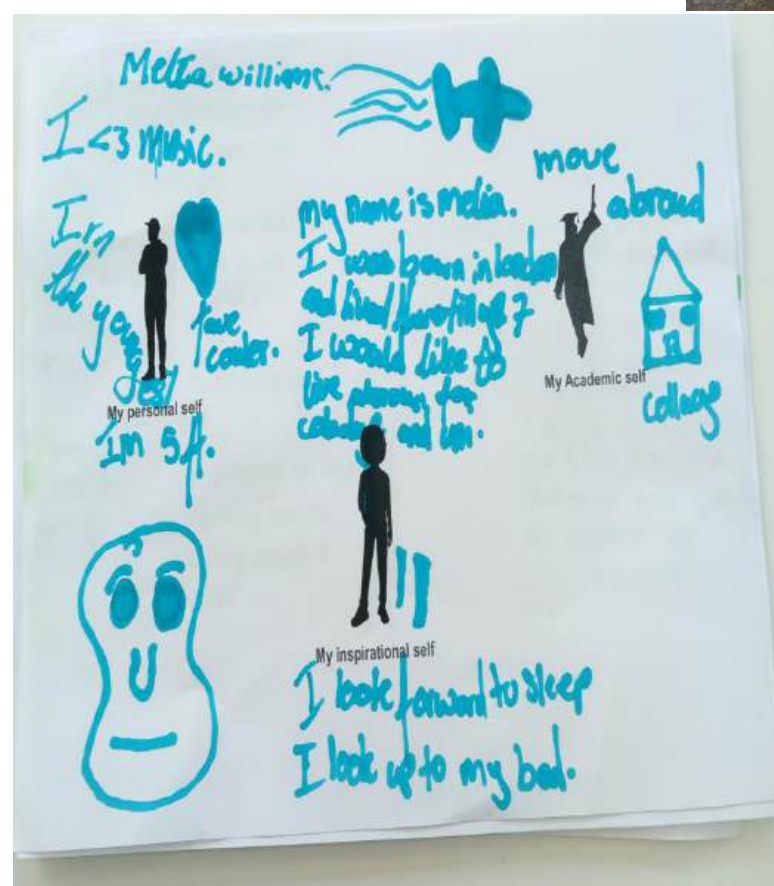 Melia williams.
I <3 Music.
I'm
the youngest
fave
couler.
My personal self
Im 5ft.
my name is melia.
I was bown in london
and lived here till age 7
I would like to
live away for
and
move
abroad
My Academic self
collage
My inspirational self
I look forward to sleep
I look up to my bed.